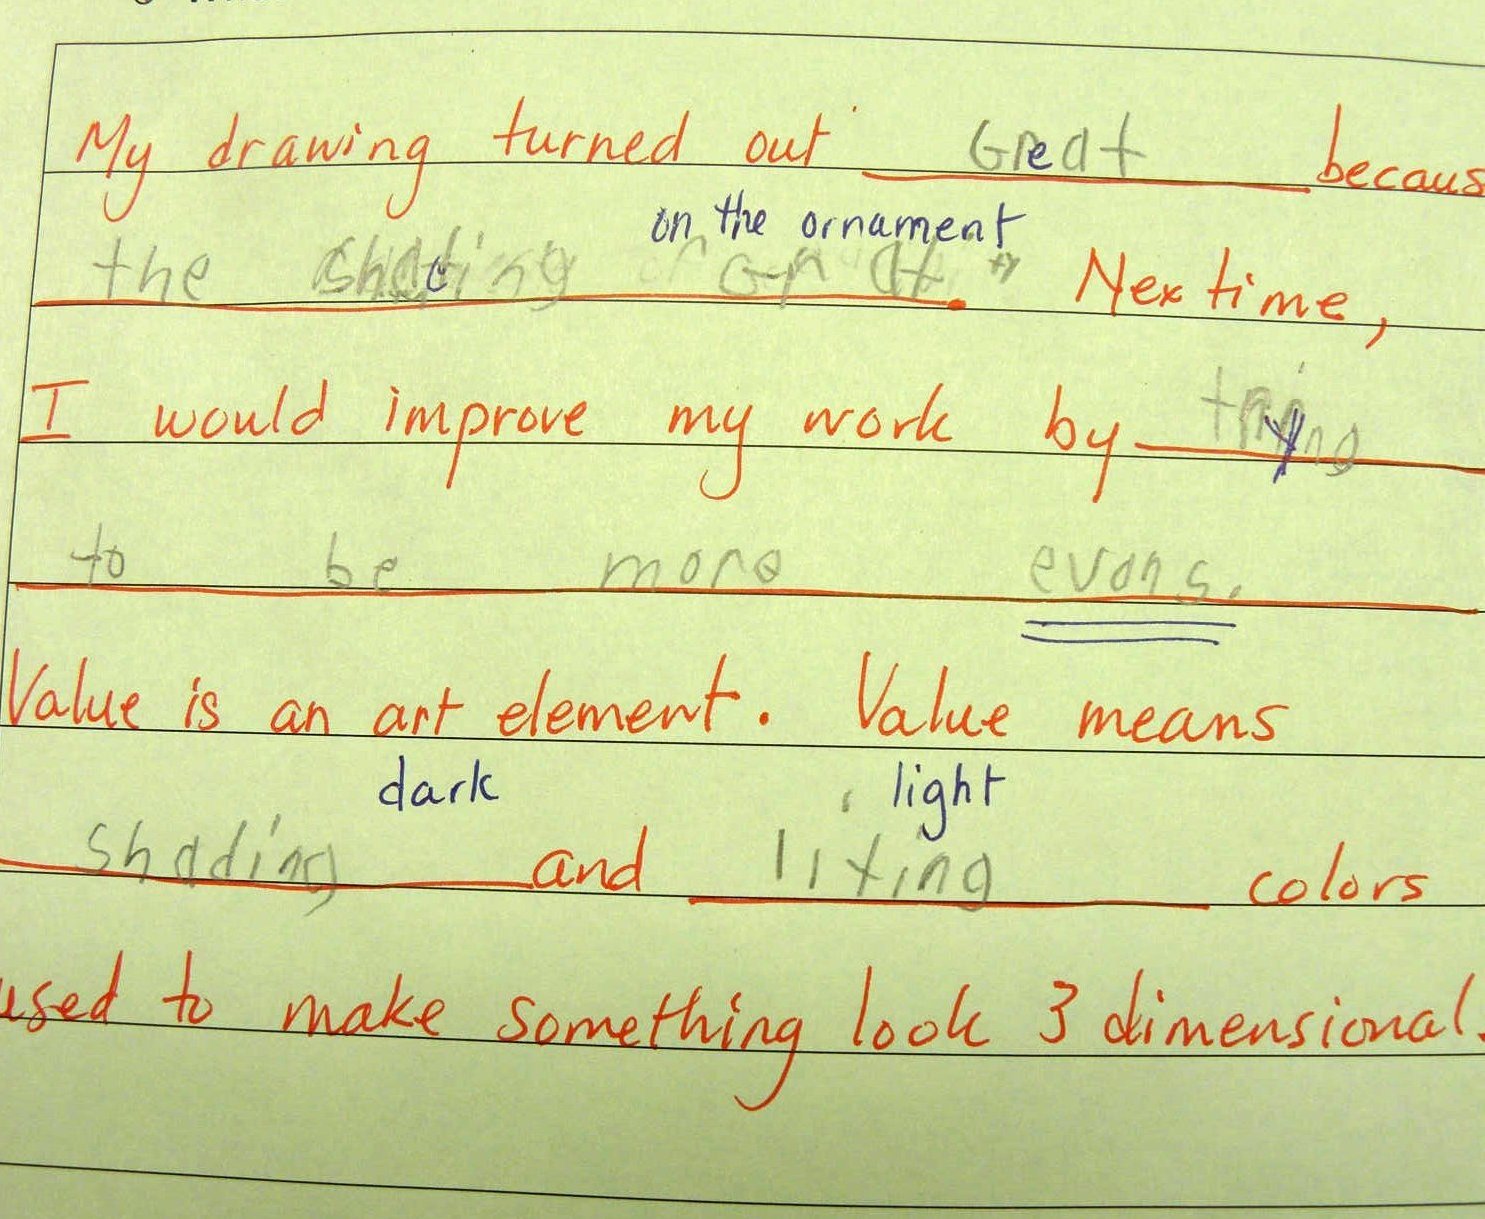 My drawing turned out Great becaus
on the ornament
the shading Nex time,
I would improve my work by trying
to be more evans.
Value is an art element. Value means
dark light
shading and liting colors
used to make something look 3 dimensional.